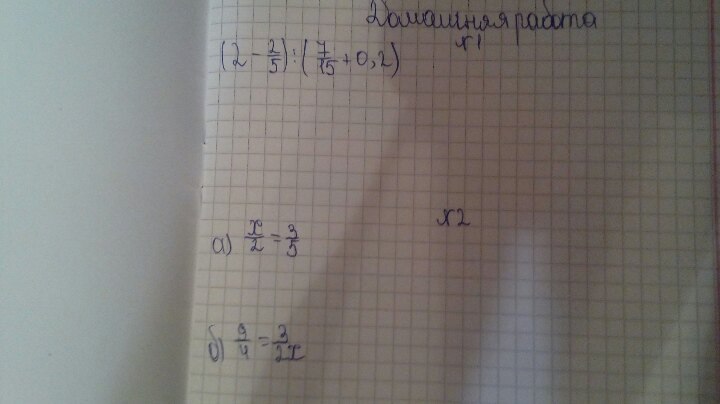 Домашняя работа
№1
(2 - 2/5) : (7/15 + 0,2)
№2
а) x/2 = 3/5
б) 9/4 = 3/2x